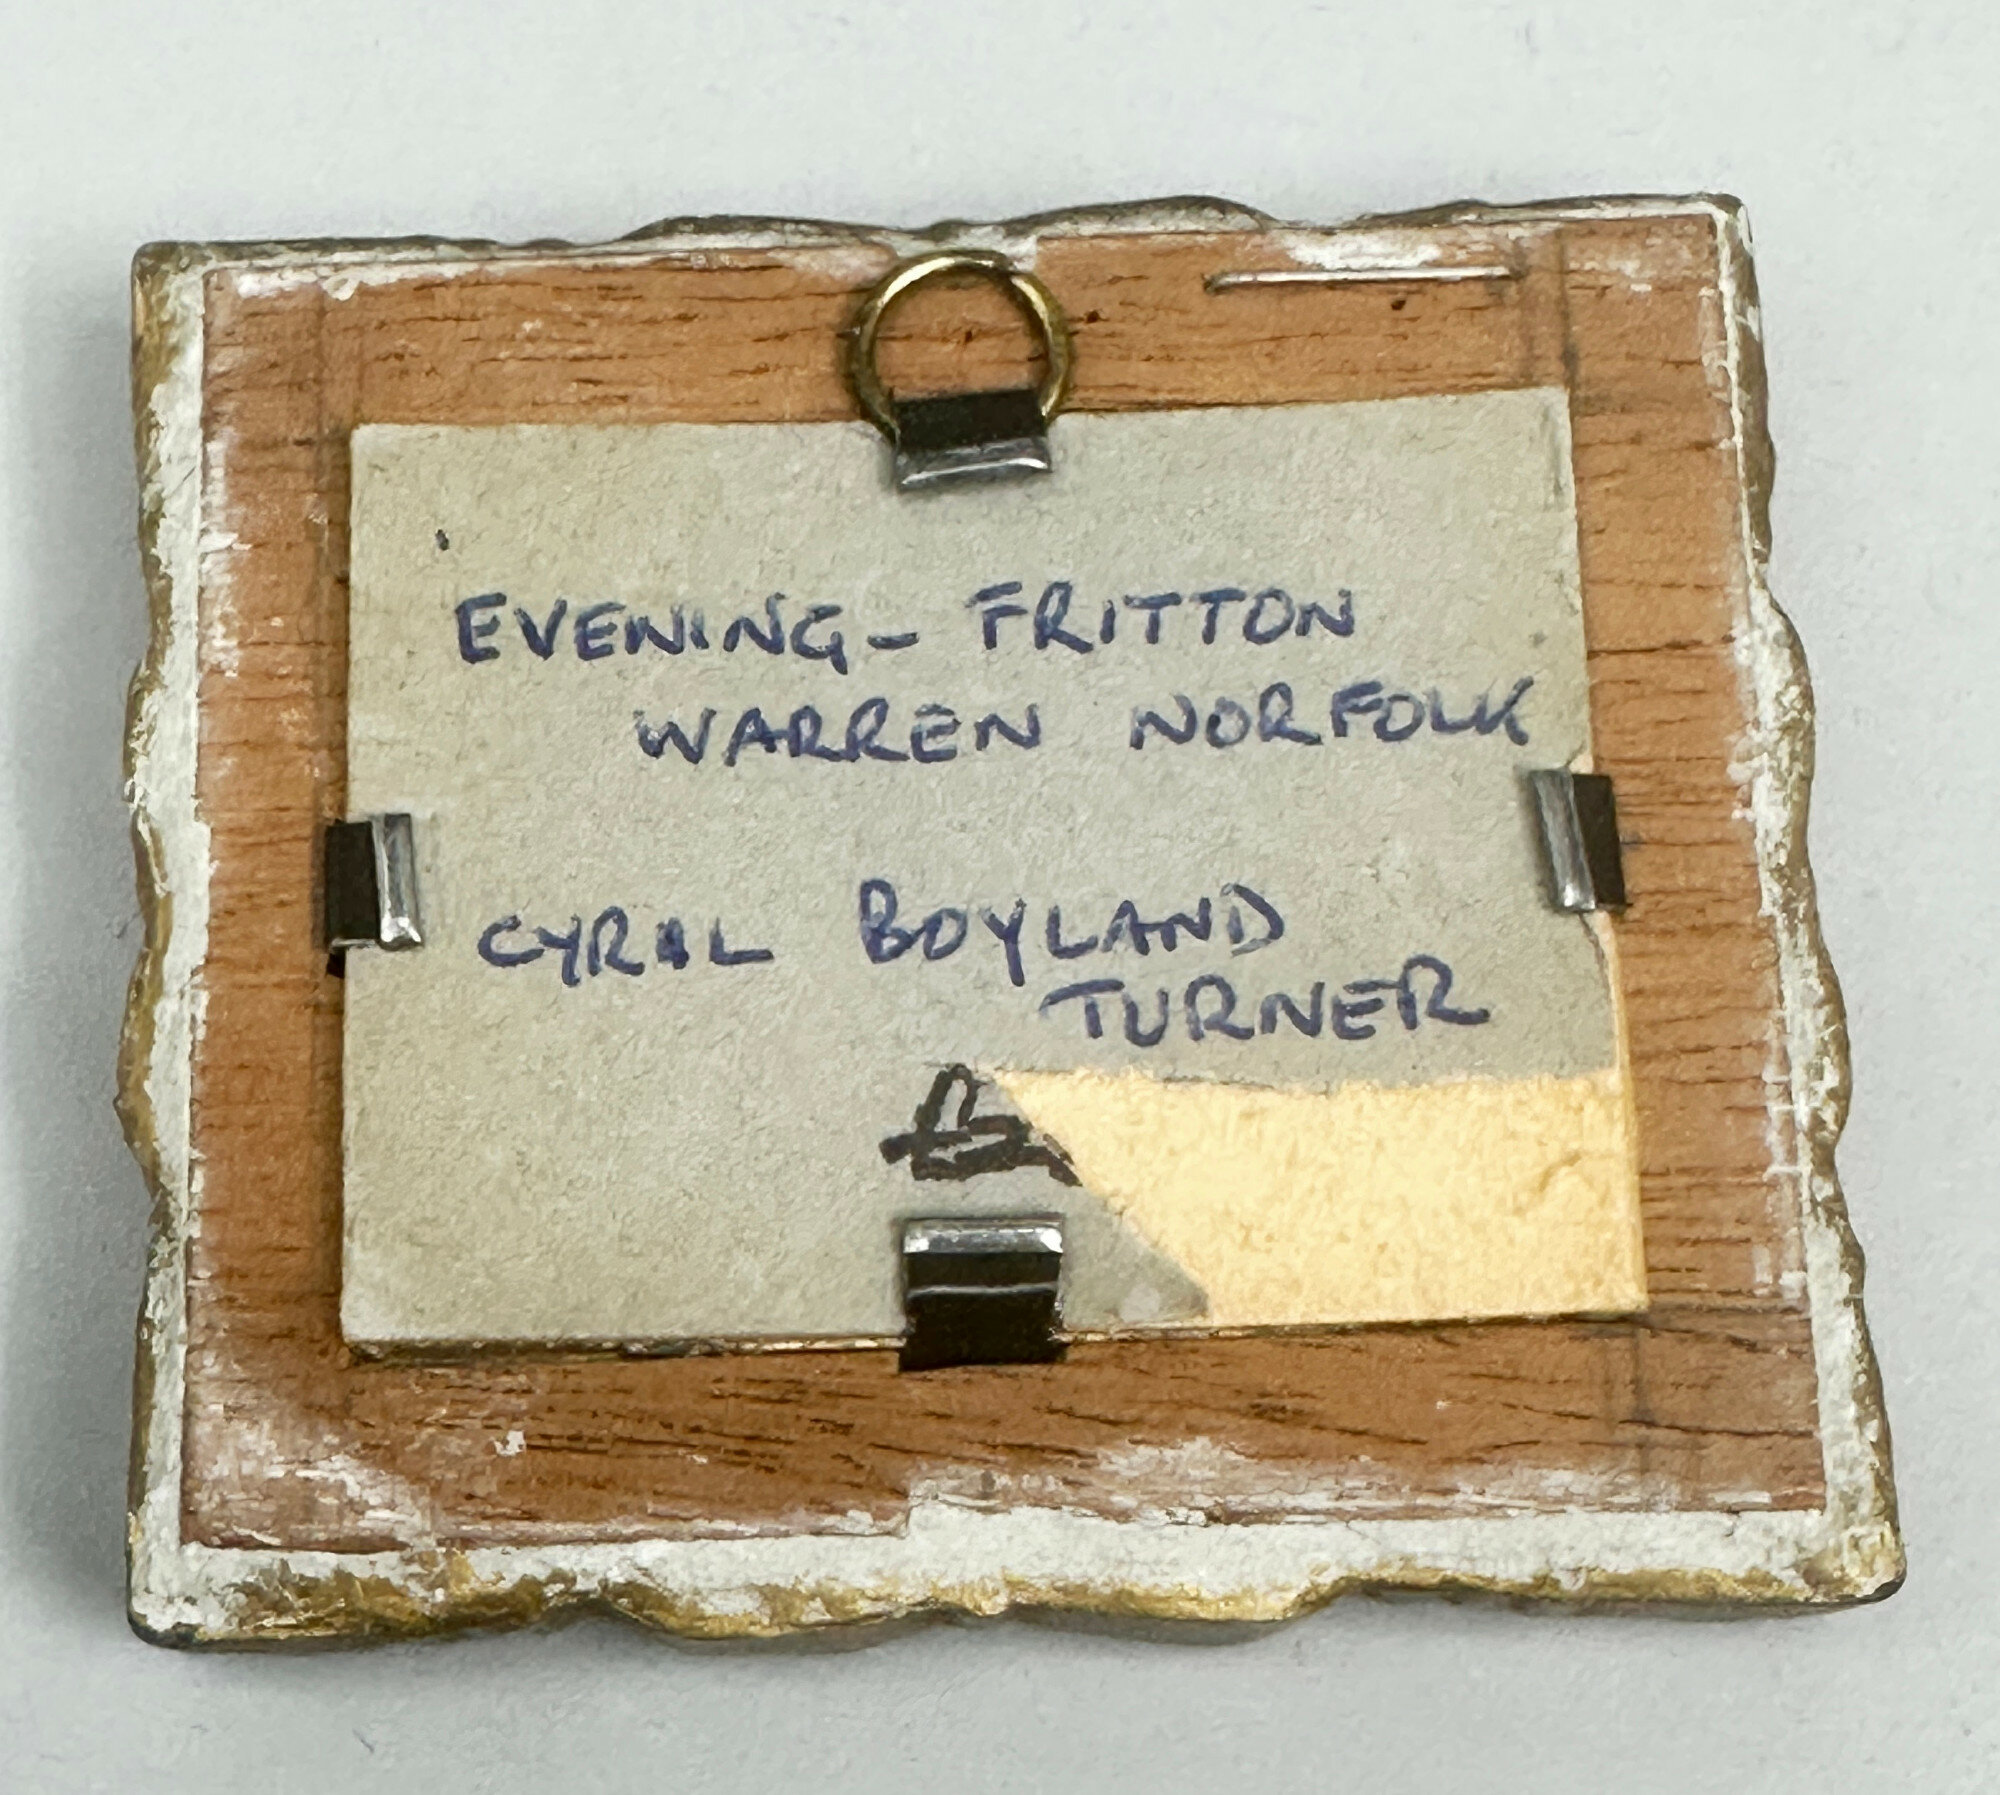 EVENING - FRITTON
WARREN NORFOLK
CYRAL BOYLAND
TURNER